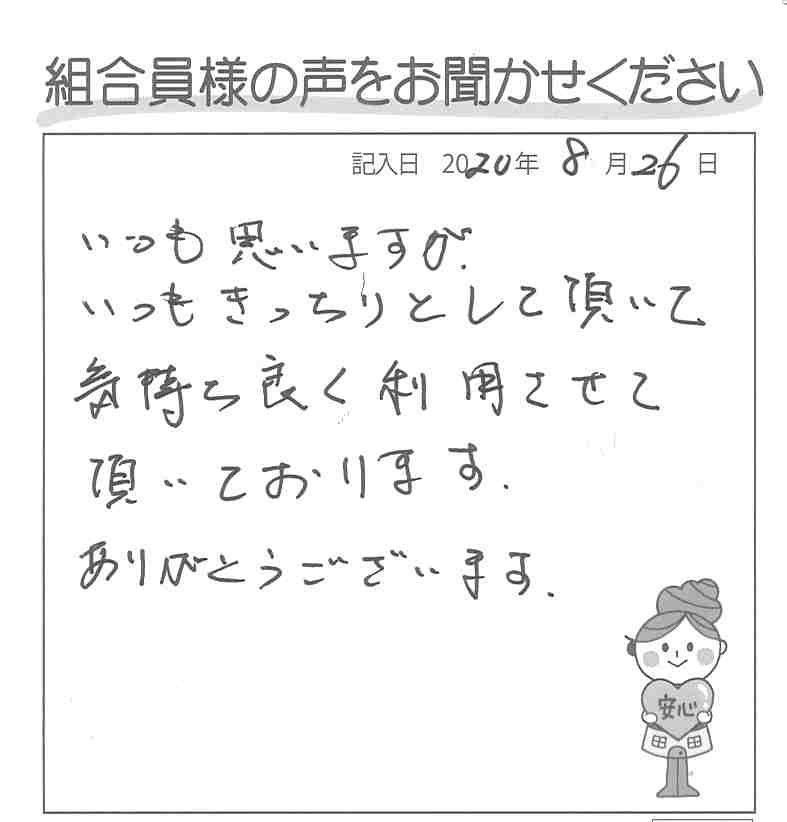 組合員様の声をお聞かせください
記入日 2020年 8月26日
いつも思いますが、
いつもきっちりとして頂いて
気持ち良く利用させて
頂いております.
ありがとうございます.
安心